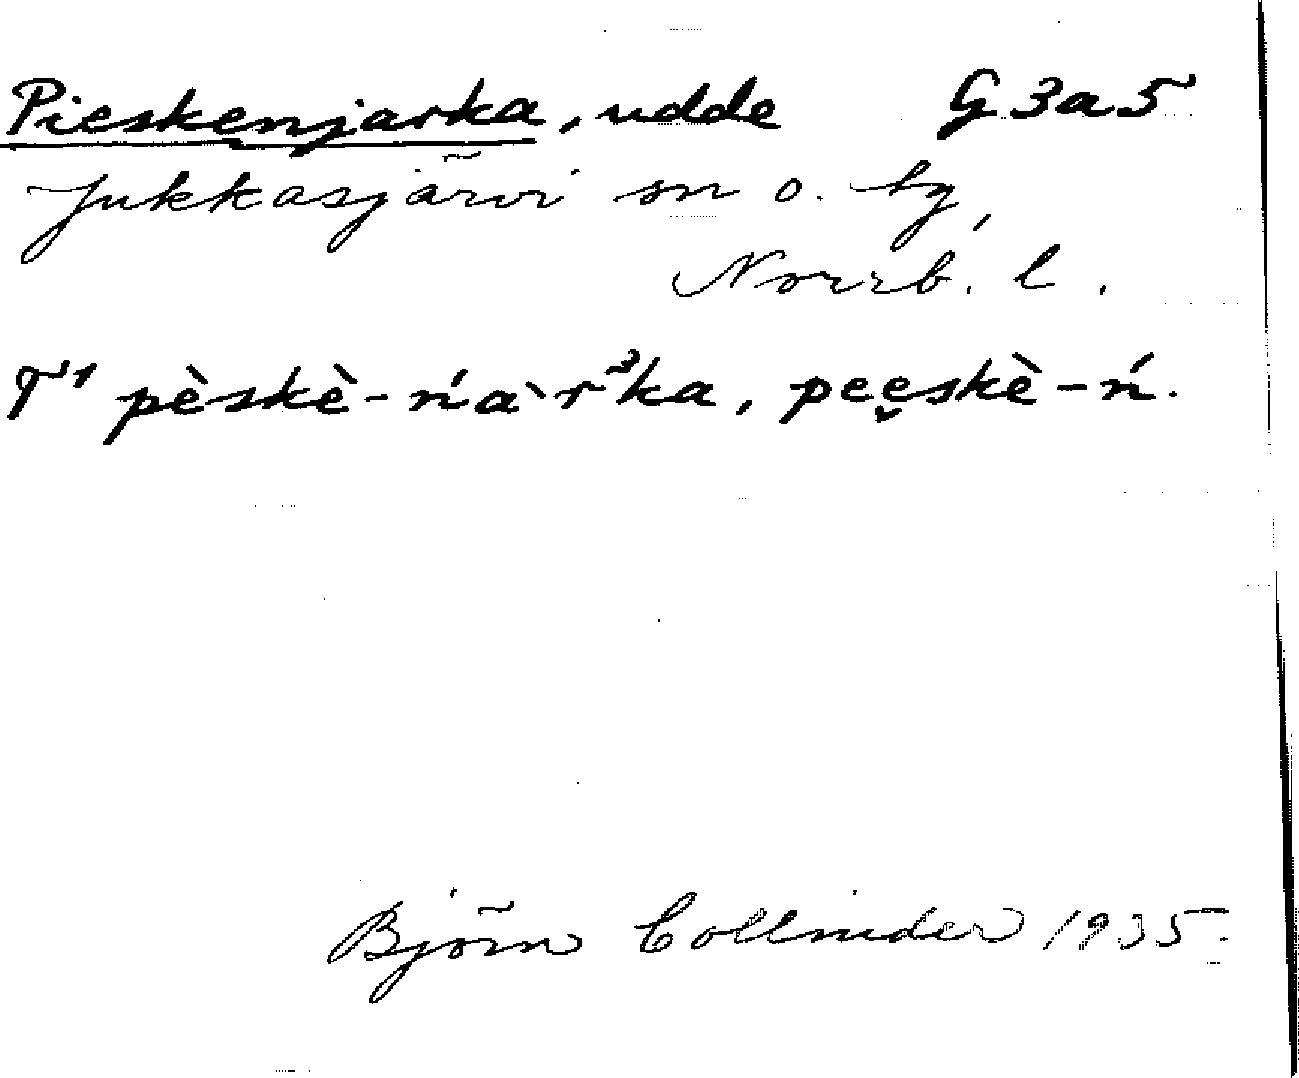 Pieskenjarka, udde G3a5
Jukkasjärvi sn o. tg,
Norrb. l.
T¹ pèskè-ńàr³ka, pee̬skè-ń.
Björn Collinder 1935.